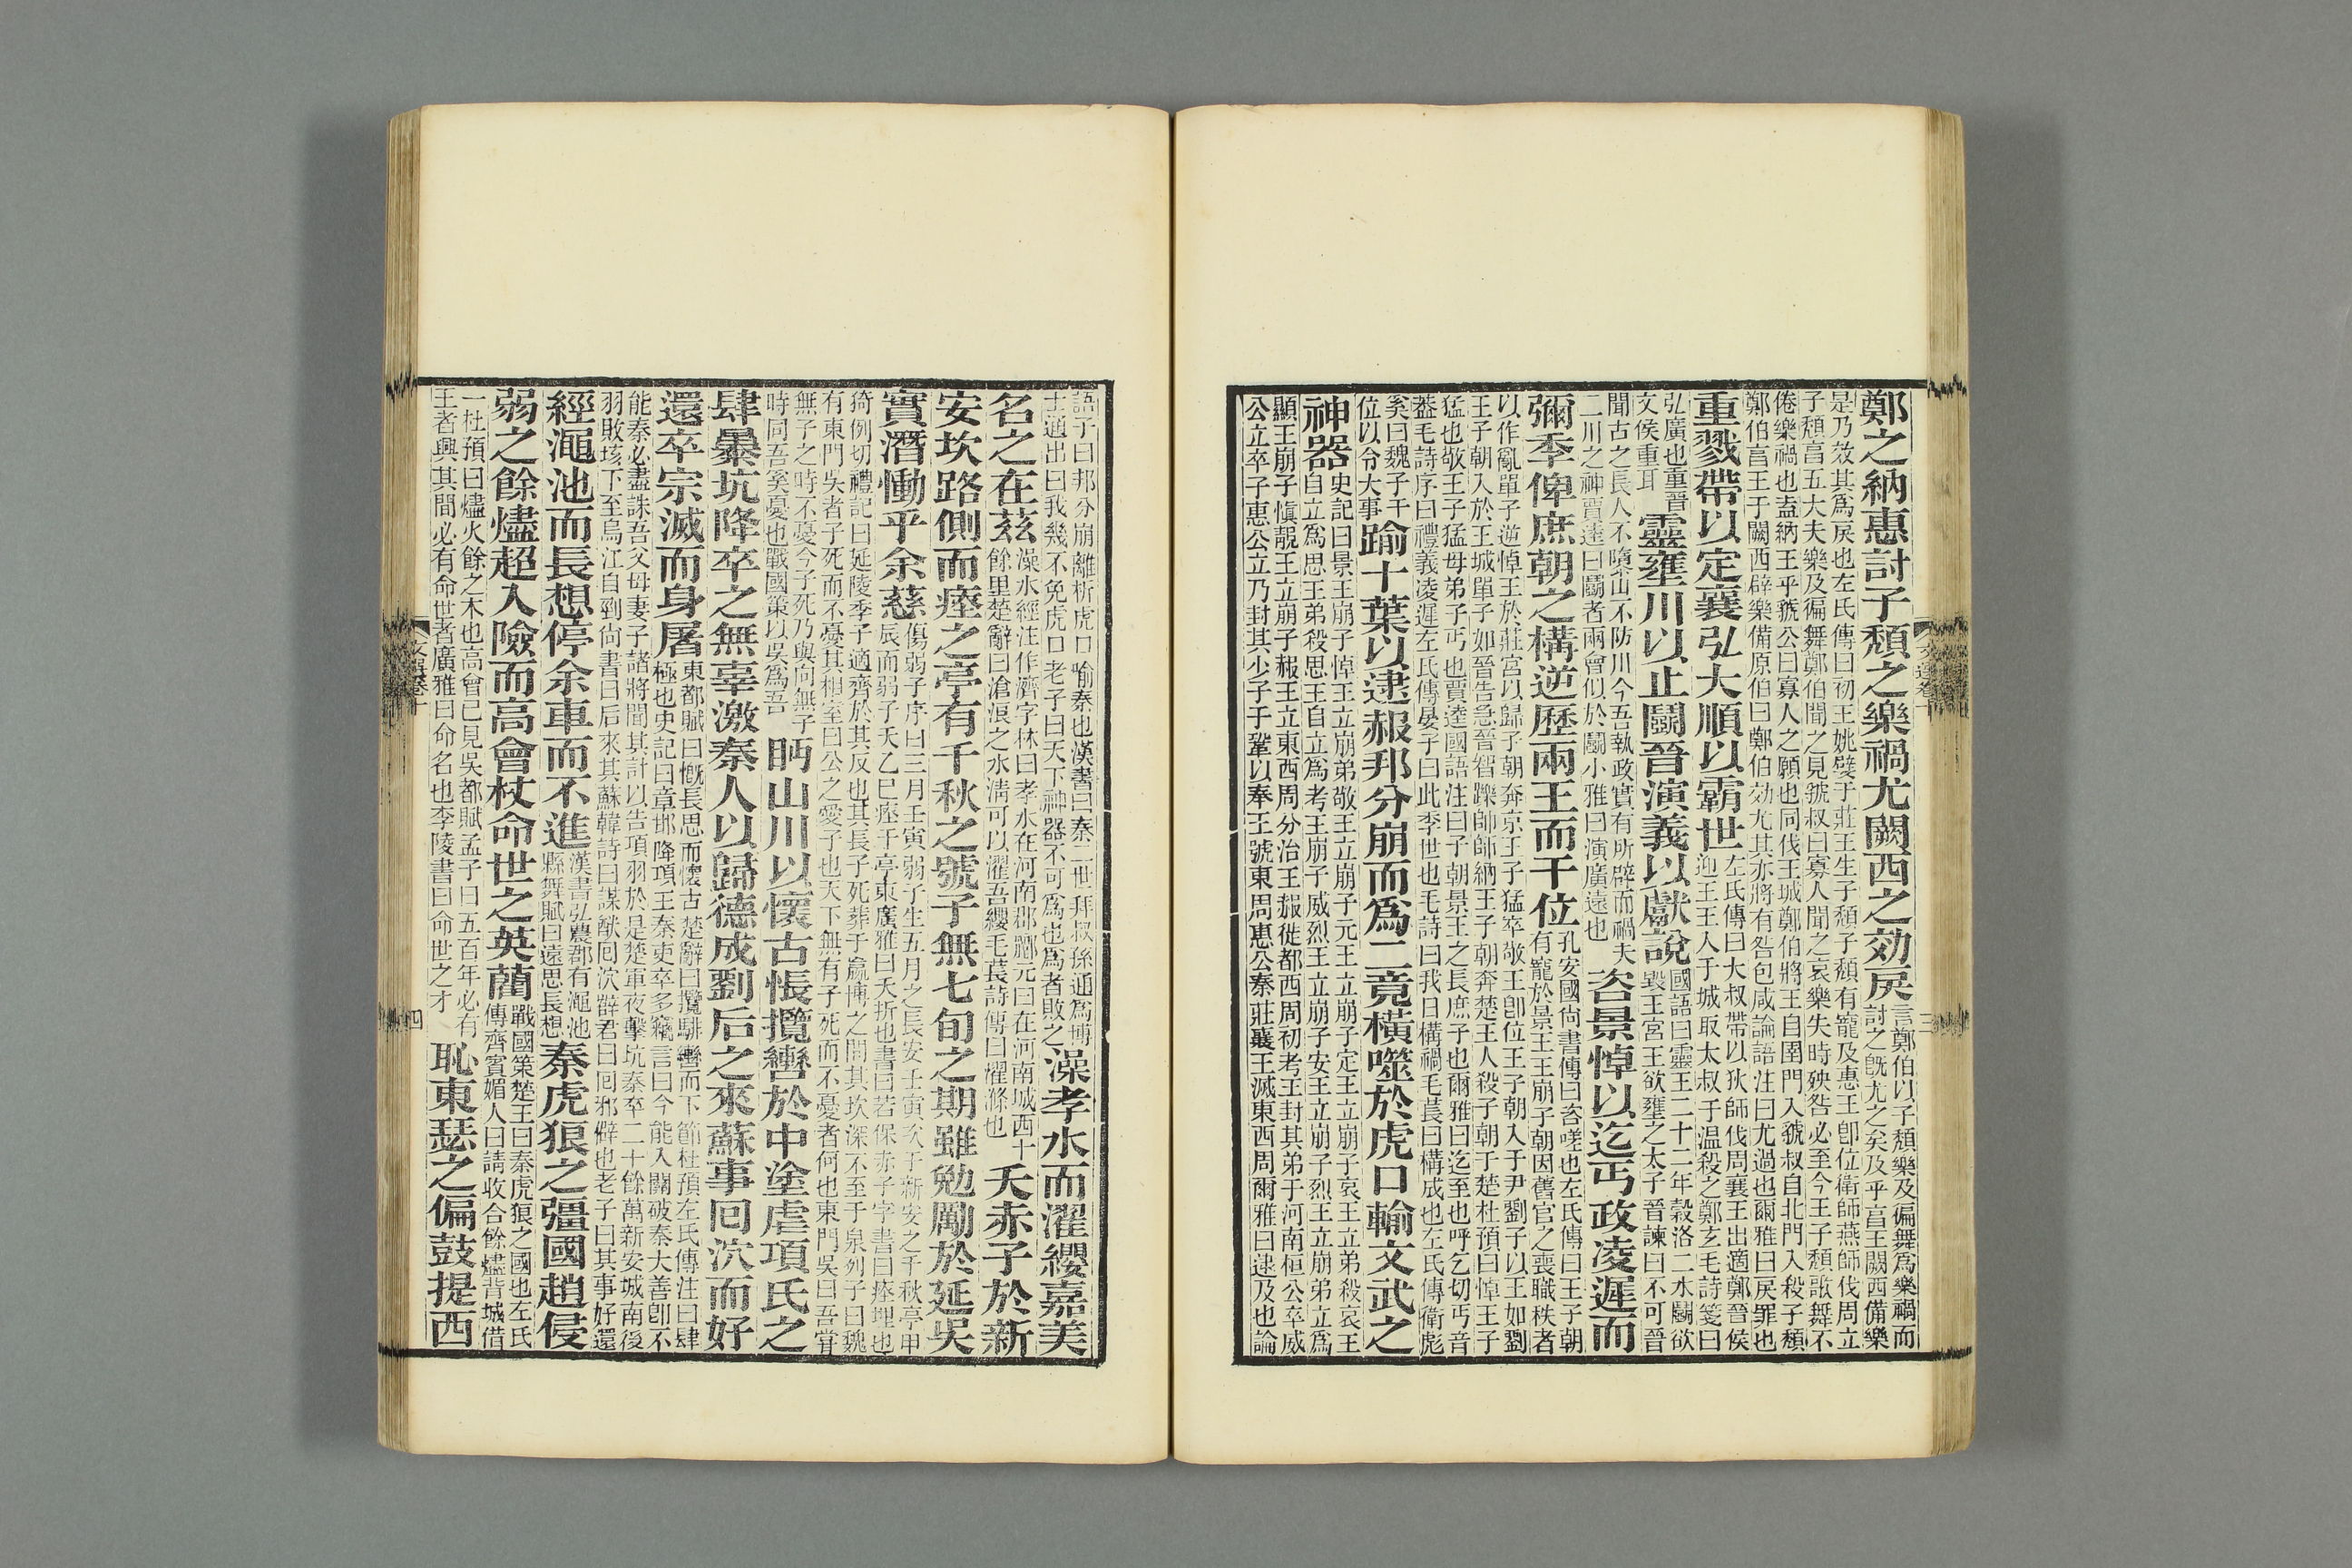 鄭之納惠討子頹之樂禍尤闕西之効戾
言鄭伯以子頹樂及徧舞爲樂禍而
討之旣尤之矣及乎享王闕西備樂
是乃效其爲戾也左氏傳曰初王姚嬖于莊王生子頹子頹有寵及惠王卽位衛師燕師伐周立
子頹享五大夫樂及徧舞鄭伯聞之見虢叔曰寡人聞之哀樂失時殃咎必至今王子頹歌舞不
倦樂禍也盍納王乎虢公曰寡人之願也同伐王城鄭伯將王自圉門入虢叔自北門入殺子頹
鄭伯享王于闕西辟樂備原伯曰鄭伯効尤其亦將有咎包咸論語注曰尤過也爾雅曰戾罪也
重戮帶以定襄弘大順以霸世
左氏傳曰大叔帶以狄師伐周襄王出適鄭晉侯
迎王王人于城取太叔于温殺之鄭玄毛詩箋曰
弘廣也重晉
文侯重耳
靈壅川以止鬭晉演義以獻說
國語曰靈王二十二年穀洛二水鬭欲
毀王宮王欲壅之太子晉諫曰不可晉
聞古之長人不隳山不防川今吾執政實有所辟而禍夫
二川之神賈逵曰鬭者兩會似於鬭小雅曰演廣遠也
咨景悼以迄丐政凌遲而
彌季俾庶朝之構逆歷兩王而干位
孔安國尚書傳曰咨嗟也左氏傳曰王子朝
有寵於景王王崩子朝因舊官之喪職秩者
以作亂單子逆悼王於莊宮以歸子朝奔京王子猛卒敬王卽位王子朝入于尹劉子以王如劉
王子朝入於王城單子如晉告急晉智躒帥師納王子朝奔楚王人殺子朝于楚杜預曰悼王子
猛也敬王子猛母弟子丐也賈逵國語注曰子朝景王之長庶子也爾雅曰迄至也呼乞切丐音
蓋毛詩序曰禮義凌遲左氏傳晏子曰此季世也毛詩曰我日構禍毛萇曰構成也左氏傳衛彪
奚曰魏子干
位以令大事
踰十葉以逮赧邦分崩而爲二竟橫噬於虎口輸文武之
神器
史記曰景王崩子悼王立崩弟敬王立崩子元王立崩子定王立崩子哀王立弟殺哀王
自立爲思王弟殺思王自立爲考王崩子威烈王立崩子安王立崩子烈王立崩弟立爲
顯王崩子愼靚王立崩子赧王立東西周分治王赧徙都西周初考王封其弟于河南恒公卒威
公立卒子惠公立乃封其少子于鞏以奉王號東周惠公秦莊襄王滅東西周爾雅曰逮乃也論
語子曰邦分崩離析虎口喻秦也漢書曰秦二世拜叔孫通爲博
士通出曰我幾不免虎口老子曰天下神器不可爲也爲者敗之
澡孝水而濯纓嘉美
名之在茲
澡水經注作濟字林曰孝水在河南郡酈元曰在河南城西十
餘里楚辭曰滄浪之水清可以濯吾纓毛萇詩傳曰濯滌也
夭赤子於新
安坎路側而瘞之亭有千秋之號子無七旬之期雖勉勵於延吳
實潛慟乎余慈
傷弱子序曰三月壬寅弱子生五月之長安壬寅次于新安之千秋亭甲
辰而弱子夭乙巳瘞于亭東廣雅曰夭折也書曰若保赤子字書曰瘞埋也
猗例切禮記曰延陵季子適齊於其反也其長子死葬于嬴博之閒其坎深不至于泉列子曰魏
有東門吳者子死而不憂其相室曰公之愛子也天下無有子死而不憂者何也東門吳曰吾嘗
無子之時不憂今子死乃與向無子
時同吾奚憂也戰國策以吳爲吾
眄山川以懷古悵攬轡於中塗虐項氏之
肆暴坑降卒之無辜激秦人以歸德成劉后之來蘇事回泬而好
還卒宗滅而身屠
東都賦曰慨長思而懷古楚辭曰攬騑轡而下節杜預左氏傳注曰肆
極也史記曰章邯降項王秦吏卒多竊言曰今能入關破秦大善卽不
能秦必盡誅吾父母妻子諸將聞其計以告項羽於是楚軍夜擊坑秦卒二十餘萬新安城南後
羽敗垓下至烏江自剄尙書曰后來其蘇韓詩曰謀猷回泬薛君曰回邪僻也老子曰其事好還
經澠池而長想停余車而不進
漢書弘農郡有澠池
縣舞賦曰遠思長想
秦虎狼之彊國趙侵
弱之餘燼超入險而高會杖命世之英藺
戰國策楚王曰秦虎狼之國也左氏
傳齊賓媚人曰請收合餘燼背城借
一杜預曰燼火餘之木也高會已見吳都賦孟子曰五百年必有
王者興其間必有命世者廣雅曰命名也李陵書曰命世之才
恥東瑟之偏鼓提西
文選卷十
四